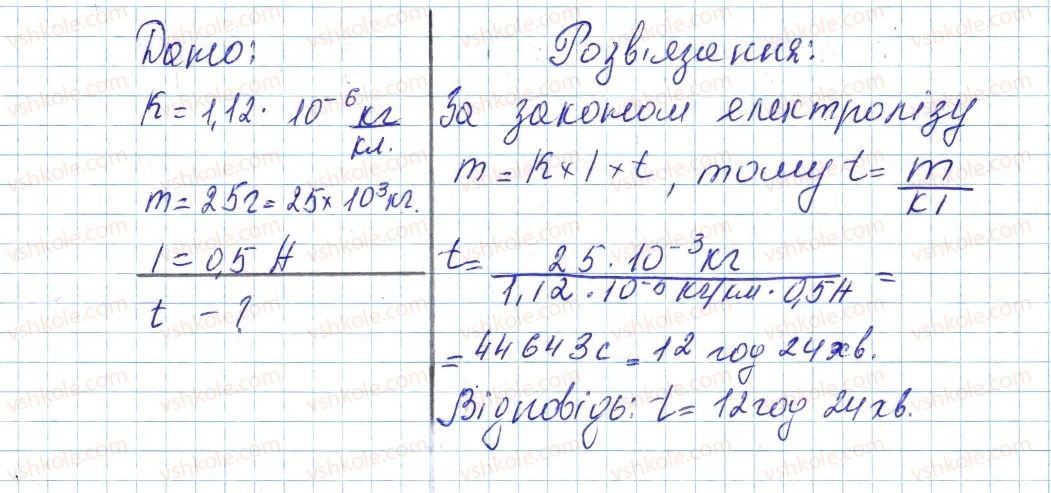 Дано:
K = 1,12 · 10⁻⁶ кг/кл.
m = 25г = 25 × 10³ кг.
I = 0,5 А
t - ?
Розв'язання:
За законом електролізу
m = K × I × t, тому t = m/кI
t = 25 · 10⁻³ кг / 1,12 · 10⁻⁶ кг/кл · 0,5А =
= 44643с = 12 год 24хв.
Відповідь: t = 12год 24хв.